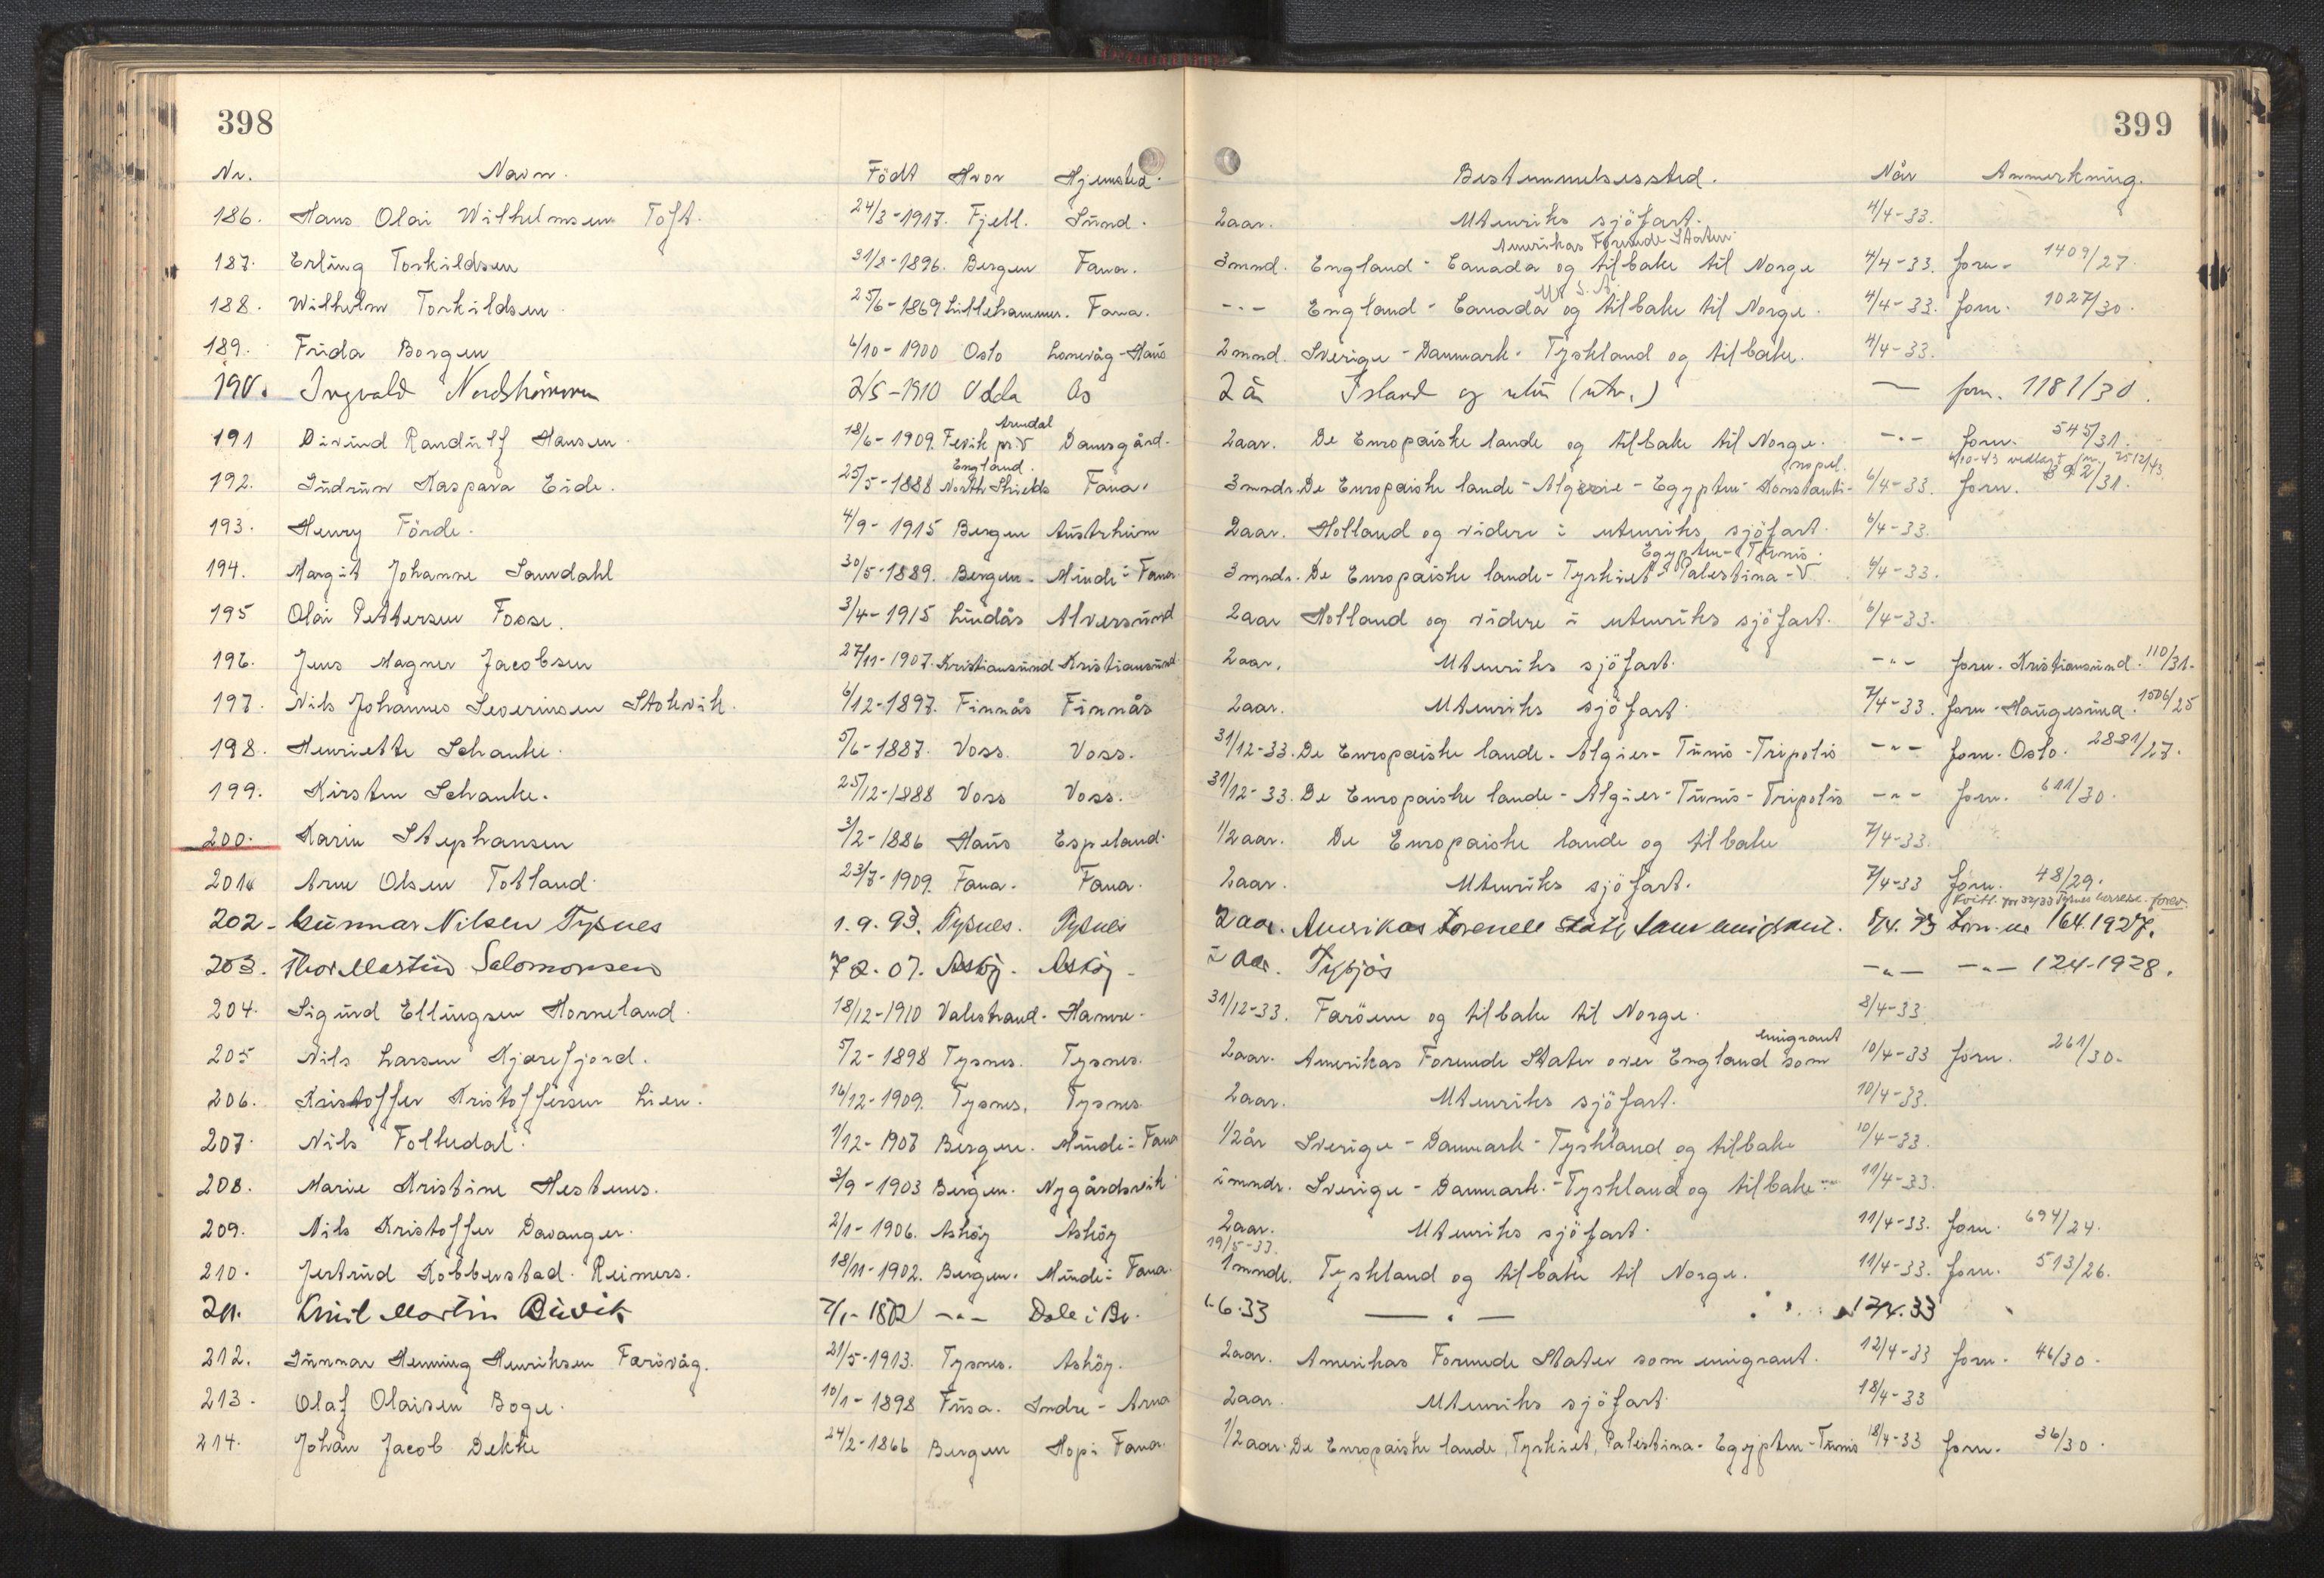 398
Nr. Navn. Födt Hvor Hjemsted.
186. Hans Olai Wilhelmsen Toft. 24/3-1917. Fjell. Sund.
187. Erling Torkildsen 31/8-1896. Bergen Fana.
188. Wilhelm Torkildsen 25/6-1869 Lillehammer. Fana.
189. Frida Borgen 6/10-1900 Oslo Lonevåg-Haus
190. Ingvald 2/5-1910 Odda Os
Arendal
191 Eivind Randulf Hansen. 18/6-1909. Fevik pr. V Damsgård.
England.
192. Gudrun Kaspara Eide. 25/5-1888 North Shields Fana.
193. Henry Förde. 4/9-1915 Bergen Austrheim
194. Margit Johanne Saurdahl 30/5-1889. Bergen. Minde i Fana.
195 Olai Pettersen Fosse. 3/4-1915 Lindås Alversund
196. Jens Magner Jacobsen 27/11-1907. Kristiansund Kristiansund.
197. Nils Johannes Severinsen Stokvik. 6/12-1897. Finnås Finnås
198. Henriette Schanke. 5/6-1887. Voss. Voss.
199. Kirsten Schanke. 25/12-1888 Voss Voss.
200. Karin Stephansen 3/2-1886 Haus Espeland.
201. Arne Olsen Totland. 23/7-1909. Fana. Fana.
202. Gunnar Nilsen Tysnes 1.9.93. Tysnes. Tysnes
203. Thor Martin Salomonsen 7 2. 07. Asköy. Asköy.
204. Sigurd Ellingsen Horneland. 18/12-1910 Valestrand. Hamre.
205 Nils Larsen Kjærefjord. 5/2-1898 Tysnes. Tysnes.
206. Kristoffer Kristoffersen Lien. 16/12-1909. Tysnes. Tysnes.
207. Nils Folkedal. 1/12-1907 Bergen. Minde i Fana
208. Marie Kristine Hestenes. 3/9-1903 Bergen. Nygårdsvik
209. Nils Kristoffer Davanger. 2/1-1906. Asköy Asköy
210. Jertrud Kobberstad Reimers. 18/11-1902. Bergen. Minde i Fana.
211. Emil Martin 7/1-1872 -"- Dale i Br.
212. Gunnar Henning Henriksen Færövåg. 21/5-1913. Tysnes. Asköy.
213. Olaf Olaisen Boge. 10/1-1898 Fusa. Indre-Arna
214. Johan Jacob Dekke 24/2-1866 Bergen Hop i Fana.
399
Bestemmelsessted. Når Anmerkning.
2aar. Utenriks sjöfart. 4/4-33.
Amerikas Forenede Stater
3mnd. England-Canada og tilbake til Norge 4/4-33. forn. 1409/27.
U. S. A.
-"- England-Canada og tilbake til Norge. 4/4-33. forn. 1027/30.
2mnd. Sverige-Danmark-Tyskland og tilbake. 4/4-33.
2 år Island og (utv.) — forn. 1181/30.
2aar. De Europæiske lande og tilbake til Norge. -"- forn. 545/31.
nopel. 4/10-43 vedlagt 2512/43
3mndr. De Europæiske lande-Algerie-Egypten-Konstanti- 6/4-33. forn. 392/31.
2aar. Holland og videre i utenriks sjöfart. 6/4-33.
Egypten-Tunis.
3mndr. De Europæiske lande-Tyrkiet-Palestina-V 6/4-33.
2aar Holland og videre i utenriks sjöfart. 6/4-33.
2aar. Utenriks sjöfart. -"- forn. Kristiansund. 110/31.
2aar. Utenriks sjöfart. 7/4-33. forn. Haugesund. 1506/25
31/12-33. De Europæiske lande-Algier-Tunis-Tripolis -"- forn. Oslo. 2881/27.
31/12-33. De Europæiske lande-Algier-Tunis-Tripolis -"- forn. 611/30.
1/2aar. De Europæiske lande og tilbake 7/4-33.
2aar. Utenriks sjöfart. 7/4-33 forn. 48/29.
Kvitt. for 32/33 Tysnes forev.
2 aar. Amerikas Forenede Stater som emigrant. 8/4.33 forn. nr 164.1927.
2 aar. -"- -"- 124-1928.
31/12-33. Færöene og tilbake til Norge. 8/4-33
emigrant
2aar. Amerikas Forenede Stater over England som 10/4-33 forn. 261/30.
2aar. Utenriks sjöfart. 10/4-33.
1/2år Sverige-Danmark-Tyskland og tilbake 10/4-33.
2mndr. Sverige-Danmark-Tyskland og tilbake 11/4-33.
2aar. Utenriks sjöfart. 11/4-33. forn. 694/24.
19/5-33.
1mnde. Tyskland og tilbake til Norge. 11/4-33. forn. 513/26.
1.6.33 —"— 12/4.33
2aar. Amerikas Forenede Stater som emigrant. 12/4-33 forn. 46/30.
2aar. Utenriks sjöfart. 18/4-33
1/2aar. De Europæiske lande, Tyrkiet, Palestina-Egypten-Tunis 18/4-33 forn. 36/30.